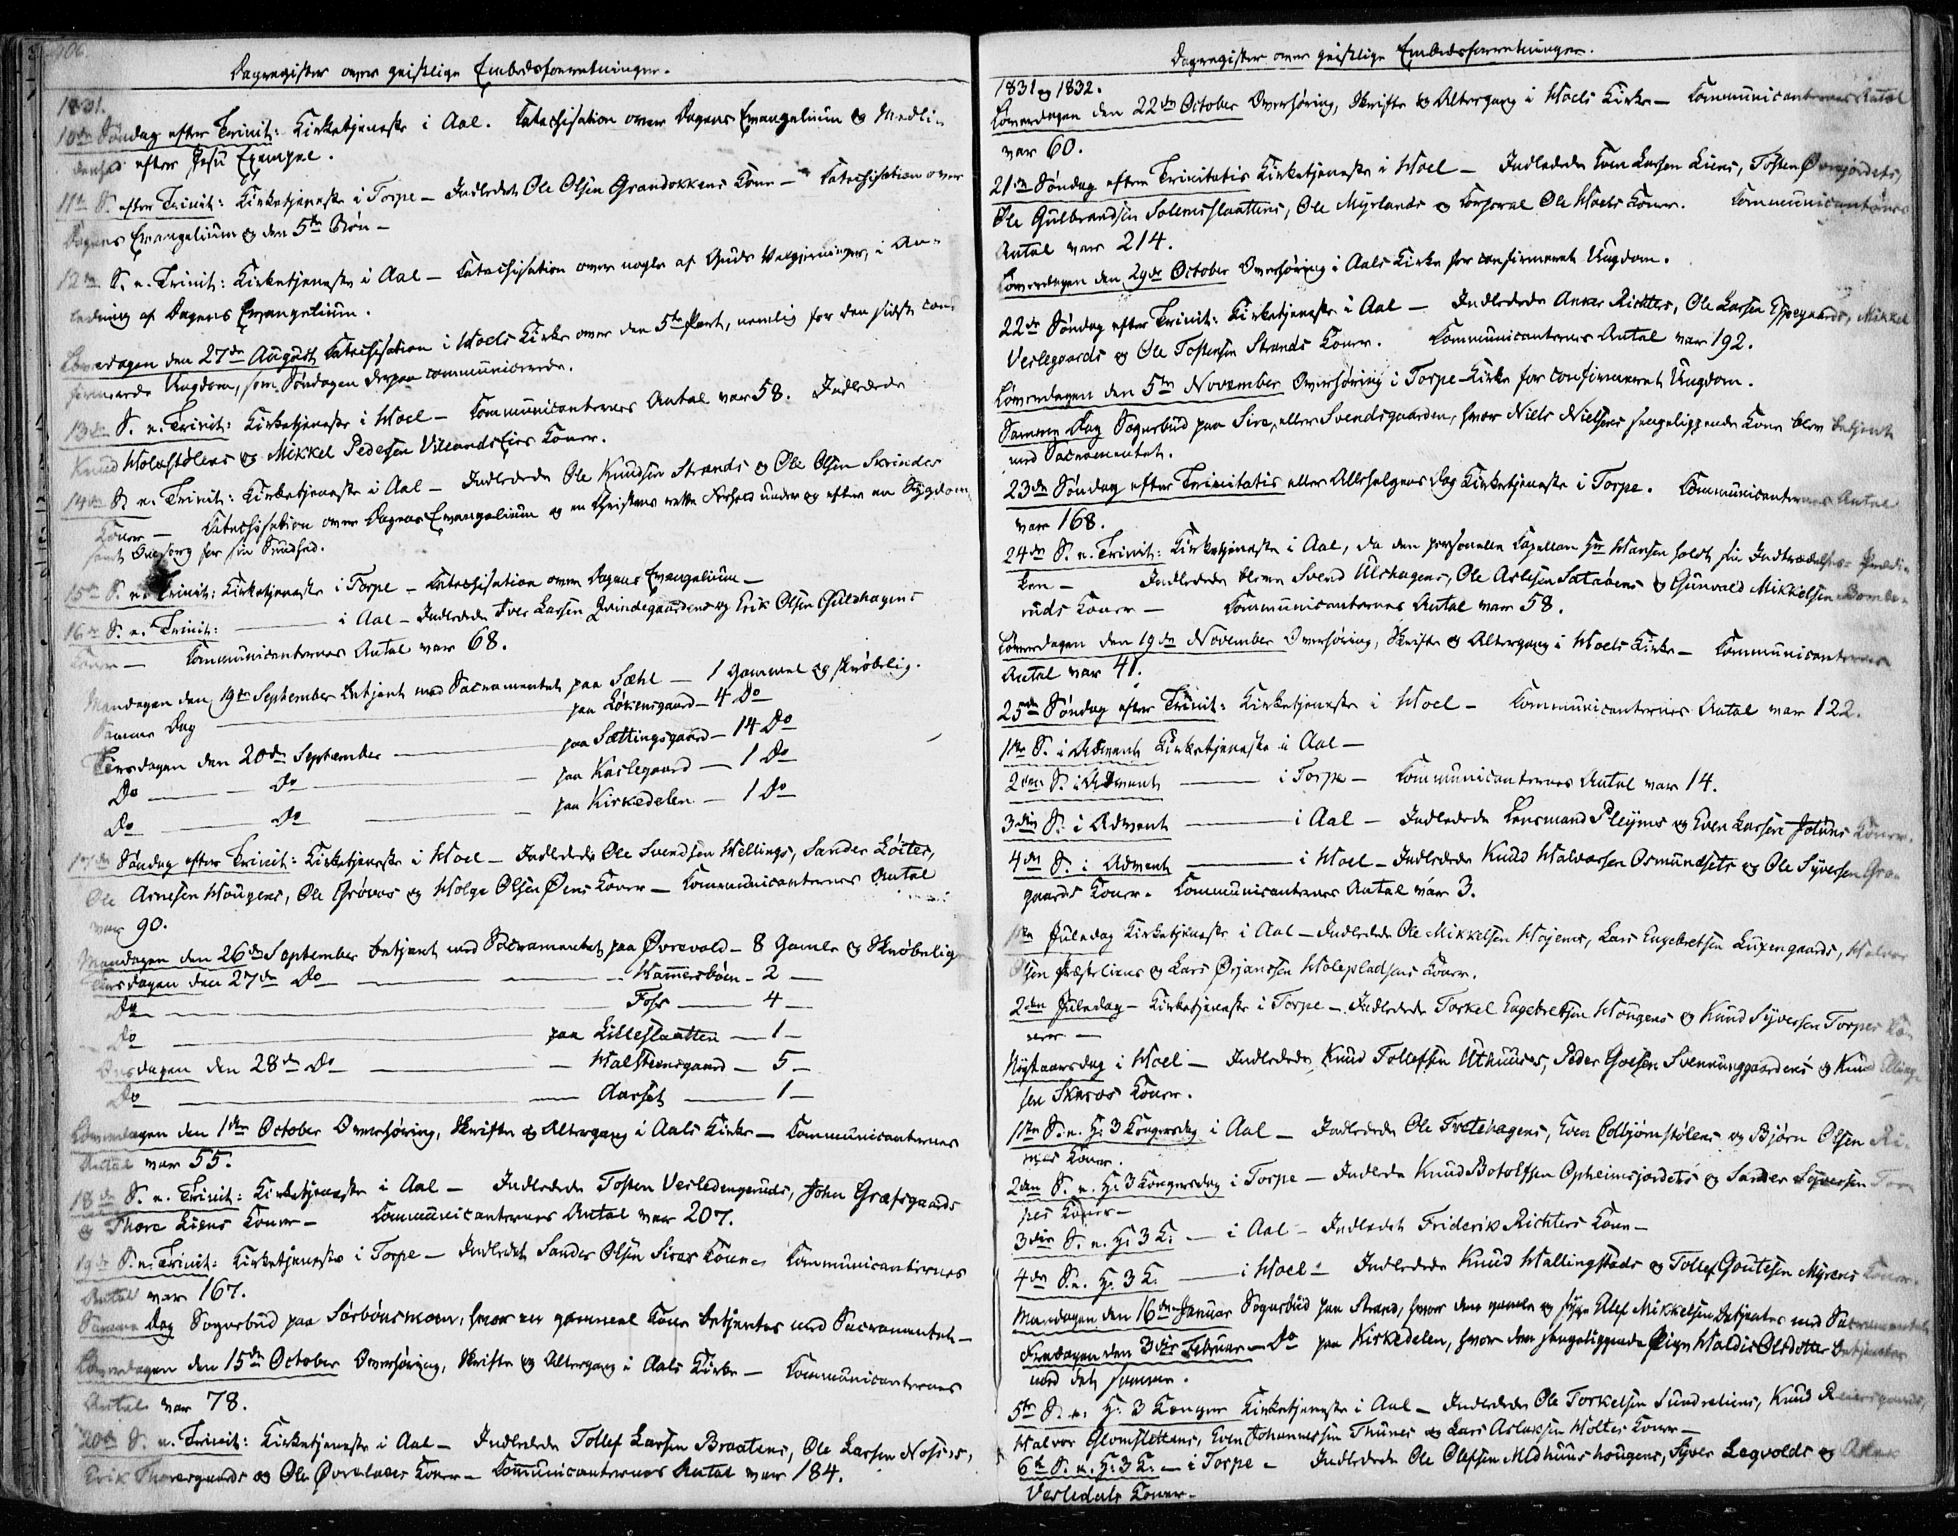 Dagregister over geistlige Embedsforretninger.
1831.
10de Søndag efter Trinit: Kirketjeneste i Aal. Catechisation over Dagens Evangelium og Medli-
denhed efter Jesu Exempel.
11te S. efter Trinit: Kirketjeneste i Torpe – Indledet Ole Olsen Grandokkens Kone – Catechisation over
Dagens Evangelium og den 5te Bøn –
12te S. e. Trinit: Kirketjeneste i Aal – Catechisation over nogle af Guds Velgjerninger, i An-
ledning af Dagens Evangelium.
Løverdagen den 27de August Catechisation i Hoels Kirke over den 5te Part, nemlig for den sidste con-
firmerede Ungdom, som Søndagen derpaa communicerede.
13de S. e. Trinit: Kirketjeneste i Hoel – Communicanternes Antal var 58. Indledede
Knud Holestølens og Mikkel Pedersen Villands Eies Koner.
14de S. e. Trinit: Kirketjeneste i Aal – Indledede Ole Knudsen Strands og Ole Olsen Skrindes
Koner – Catechisation over Dagens Evangelium og en Christens rette Forhold under og efter en Sygdom,
samt Omsorg for sin Sundhed.
15de S. e. Trinit: Kirketjeneste i Torpe – Catechisation over Dagens Evangelium –
16de S. e. Trinit: ——— i Aal – Indledede Iver Larsen Qvindegaardens og Erik Olsen Guldhagens
Koner – Communicanternes Antal var 68.
Mandagen den 19de September betjent med Sacramentet paa Sæhl — 1 Gammel og skrøbelig.
Samme Dag ——— paa Løkensgaard – 4 Do
Tirsdagen den 20de September ——— paa Sættingsgaard – 14 Do
Do ——— Do ——— paa Karlegaard — 1 Do
Do ——— Do ——— paa Kirkedelen — 1 Do
17de Søndag efter Trinit: Kirketjeneste i Hoel – Indledede Ole Svendsen Hellings, Sander Løites,
Ole Arnesen Hougens, Ole Grøvos og Holge Olsen Øens Koner – Communicanternes Antal
var 90.
Mandagen den 26de September betjent med Sacramentet paa Øvrevold – 8 Gamle og Skrøbelige
Tirsdagen den 27de Do ——— Hammersbøen – 2 —
Do ——— Foss — 4 —
Do ——— paa Lilleslaatten — 1 –
Onsdagen den 28de Do ——— Halsteensgaard – 5 –
Do ——— Aarset — 1 –
Løverdagen den 1ste October Overhøring, Skrifte og Altergang i Aals Kirke – Communicanternes
Antal var 55.
18de S. e. Trinit: Kirketjeneste i Aal – Indledede Tosten Verledengeruds, John Græfsgaards
og Thore Liens Koner – Communicanternes Antal var 207.
19de S. e. Trinit: Kirketjeneste i Torpe – Indledet Sander Olsen Sires Kone – Communicanternes
Antal var 167.
Samme Dag Sognebud paa Sørbønsmoen, hvor en gammel Kone betjentes med Sacramentet –
Løverdagen den 15de October Overhøring, Skrifte og Altergang i Aals Kirke – Communicanternes
Antal var 78.
20de S. e. Trinit: Kirketjeneste i Aal – Indledede Tollef Larsen Braatens, Ole Larsen Noss's,
Erik Thoresgaards og Ole Øvrelaers Koner – Communicanternes Antal var 184.
Dagregister over geistlige Embedsforretninger.
1831 og 1832.
Løverdagen den 22de October Overhøring, Skrifte og Altergang i Hoels Kirke – Communicanternes Antal
var 60.
21de Søndag efter Trinitatis Kirketjeneste i Hoel – Indledede Even Larsen Liens, Tosten Øvrejordets,
Ole Gulbrandsen Solemslaattens, Ole Myrlands og Corporal Ole Hoels Koner. Communicanternes
Antal var 214.
Løverdagen den 29de October Overhøring i Aals Kirke for confirmeret Ungdom.
22de Søndag efter Trinit: Kirketjeneste i Aal – Indledede Anker Richters, Ole Larsen Oppegaards, Mikkel
Verlegaards og Ole Tostensen Strands Koner. Communicanternes Antal var 192.
Løverdagen den 5te November Overhøring i Torpe-Kirke for confirmeret Ungdom.
Samme Dag Sognebud paa Sire, eller Svendsgaarden, hvor Niels Nielsens sengeliggende Kone blev betjent
med Sacramentet.
23de Søndag efter Trinitatis eller Allehelgens Dag Kirketjeneste i Torpe. Communicanternes Antal
var 168.
24de S. e. Trinit: Kirketjeneste i Aal, da den personelle Capellan Hr Hansen holdt sin Indtrædelses-Prædi-
ken – Indledede bleve Svend Ulshagens, Ole Aslesen Satrøens og Gunvald Mikkelsen Bonde-
ruds Koner – Communicanternes Antal var 58.
Løverdagen den 19de November Overhøring, Skrifte og Altergang i Hoels Kirke – Communicanternes
Antal var 41.
25de Søndag efter Trinit: Kirketjeneste i Hoel – Communicanternes Antal var 122.
1ste S. i Advent Kirketjeneste i Aal –
2den S. i Advent ——— i Torpe – Communicanternes Antal var 14.
3die S. i Advent ——— i Aal – Indledede Lensmand Pleyms og Even Larsen Jotuns Koner.
4de S. i Advent ——— i Hoel – Indledede Knud Halvorsen Osmundsets og Ole Syversen Gren-
gaards Koner. Communicanternes Antal var 3.
1ste Juledag Kirketjeneste i Aal – Indledede Ole Mikkelsen Højems, Lars Engebretsen Luxengaards, Halvor
Olsen Præstliens og Lars Ørjansen Holepladsens Koner.
2den Juledag – Kirketjeneste i Torpe – Indledede Torkel Engebretsen Hougens og Knud Syversen Torpes Ko-
ner —
Nytaarsdag i Hoel – Indledede Knud Tollefsen Uthuuses, Peder Goesen Svenkunggaardens og Knud Ellings-
sen Skraos Koner.
1ste S. e. H: 3 Kongersdag i Aal – Indledede Ole Tretehagens, Even Colbjørnstølens og Bjørn Olsen Ri-
mes Koner.
2den S. e. H: 3 Kongersdag i Torpe – Indledede Knud Botolfsen Opheimsjordets og Sander Syversen Tor-
pes Koner –
3die S. e. H: 3 K: — i Aal – Indledet Friderik Richters Kone –
4de S. e. H: 3 K. — i Hoel – Indledede Knud Hallingstads og Tollef Goutesen Myrens Koner.
Mandagen den 16de Januar Sognebud paa Strand, hvor den gamle og syge Olef Mikkelsen betjentes med Sacramentet
Fredagen den 3die Februar – Do paa Kirkedelen, hvor den sengeliggende Pige Haldis Olsdotter betjentes
med det samme.
5te S. e. H: 3 Konger Kirketjeneste i Aal – Indledede Ole Torkelsen Sundreliens, Knud Reiersgaards,
Halvor Glomslettens, Even Johannessen Thunes og Lars Aslaksen Holtes Koner –
6te S. e. H: 3 K: — i Torpe – Indledede Ole Olefsen Medhuushougens, Syver Legvolds og Aslak
Vesledals Koner –